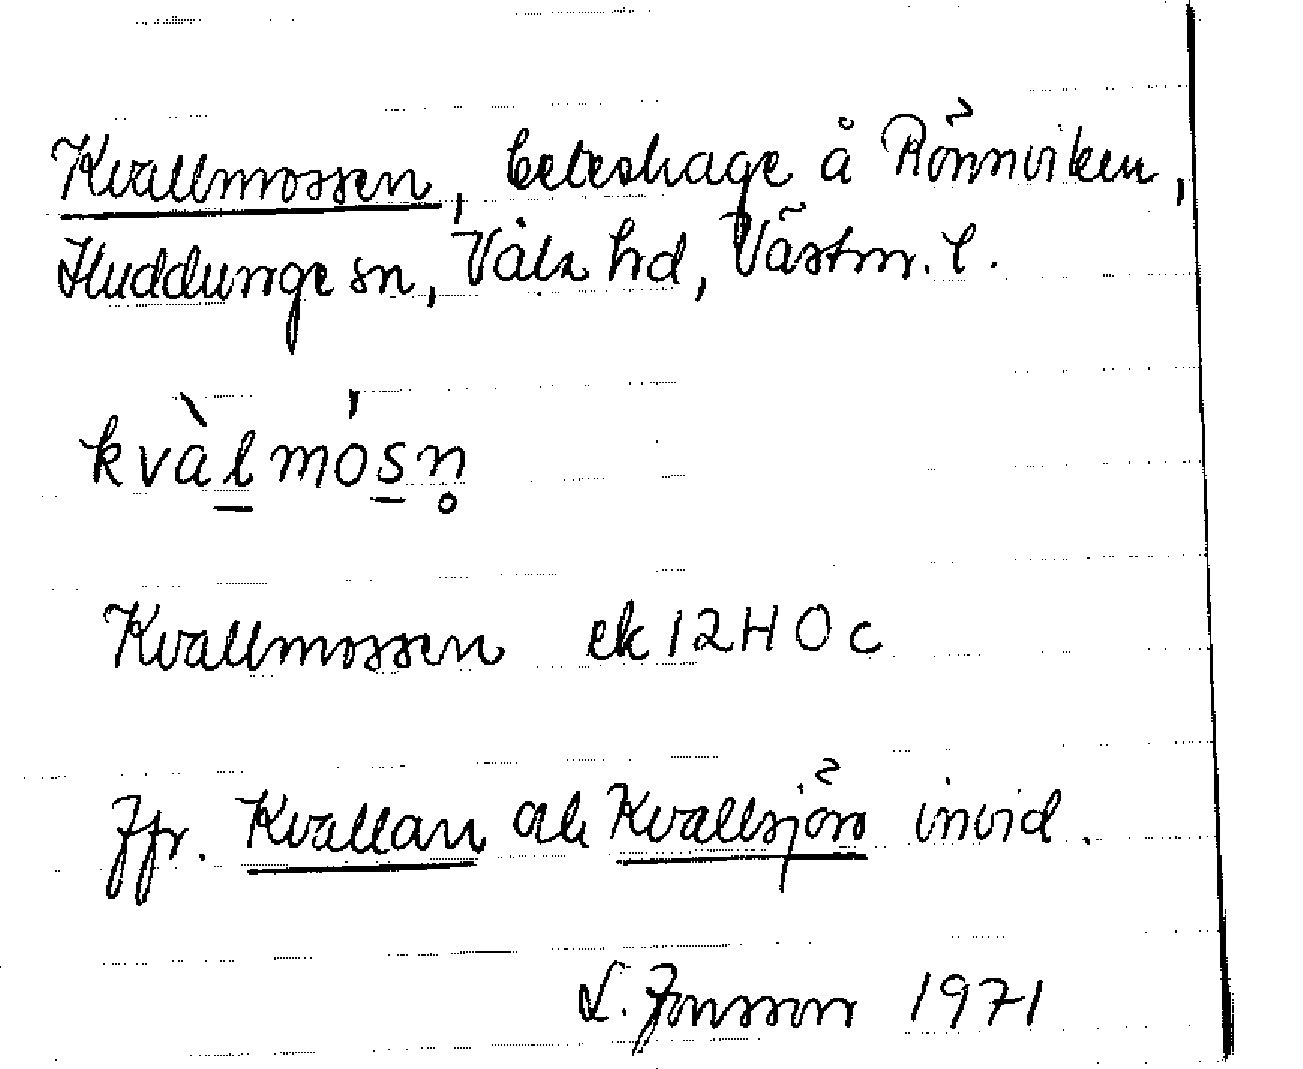 Kvallmossen, beteshage å Rönnviken,
Huddunge sn, Våla hd, Västm. l.
kvàlmósn̥
Kvallmossen ek 12H 0 c
Jfr. Kvallan och Kvallsjön invid.
L. Jonsson 1971